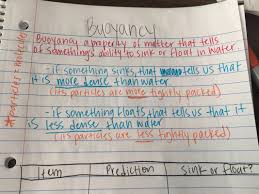 Buoyancy
Buoyancy a property of matter that tells
of something's ability to sink or float in water.
- if something sinks, that tells us that
it is more dense than water
(its particles are more tightly packed)
- if something floats that tells us that it
is less dense than water
(its particles are less tightly packed)
Item Prediction Sink or Float?